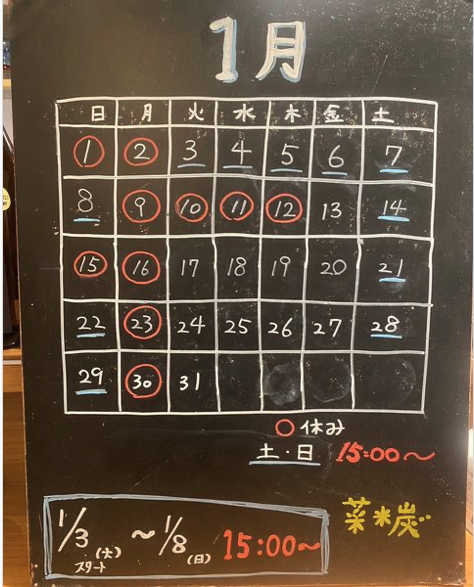 1月
日 月 火 水 木 金 土
1 2 3 4 5 6 7
8 9 10 11 12 13 14
15 16 17 18 19 20 21
22 23 24 25 26 27 28
29 30 31
○休み
土・日 15:00〜
1/3(火)スタート 〜 1/8(日) 15:00〜
菜米炭